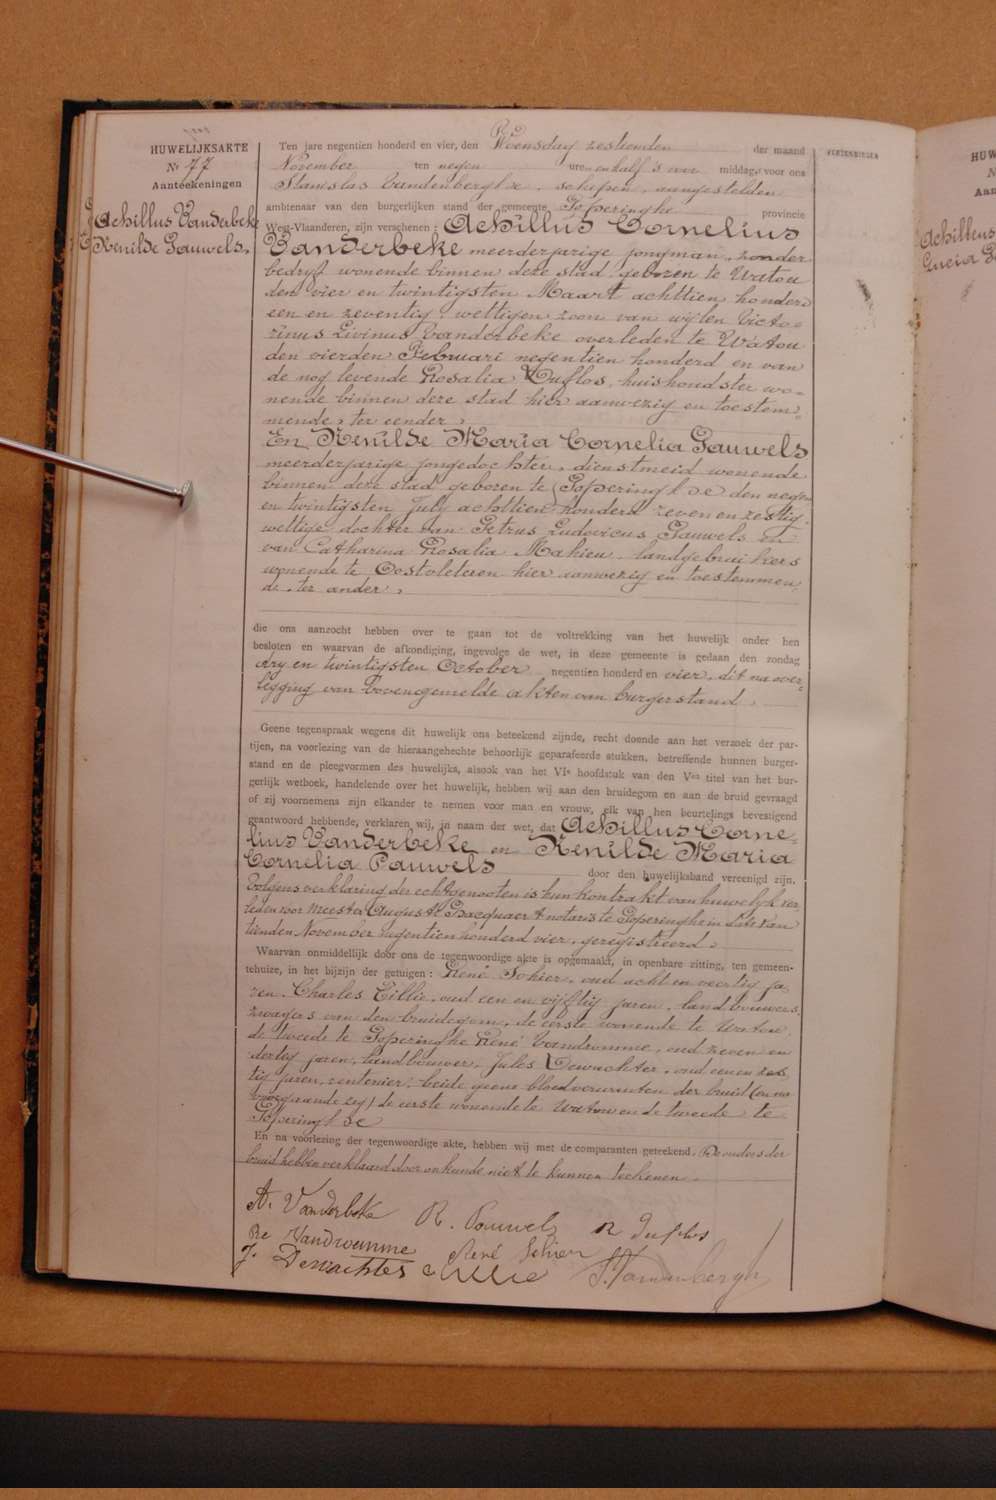 HUWELIJKSAKTE
Nr 77
Aanteekeningen
Achillus Vanderbeke
& Renilde Pauwels.
Ten jare negentien honderd en vier, den Woensdag zestienden der maand
November ten negen ure en half 's voor middags voor ons
Stanislas Vandenberghe, schepen, aangestelden
ambtenaar van den burgerlijken stand der gemeente Poperinghe provincie
West-Vlaanderen, zijn verschenen : Achillus Cornelius
Vanderbeke meerderjarige jongman, zonder
bedrijf wonende binnen deze stad geboren te Watou
den vier en twintigsten Maart achttien honderd
een en zeventig, wettigen zoon van wijlen Victo-
rinus Livinus Vanderbeke overleden te Watou
den vierden Februari negentien honderd en van
de nog levende Rosalia Duflos, huishoudster wo-
nende binnen deze stad hier aanwezig en toestem-
mende, ter eender,
En Renilde Maria Cornelia Pauwels
meerderjarige jongedochter, dienstmeid wonende
binnen deze stad geboren te Poperinghe den negen
en twintigsten July achttien honderd zeven en zestig,
wettige dochter van Petrus Ludovicus Pauwels en
van Catharina Rosalia Mahieu, landgebruikers
wonende te Oostvleteren hier aanwezig en toestemmen-
de, ter ander,
die ons aanzocht hebben over te gaan tot de voltrekking van het huwelijk onder hen
besloten en waarvan de afkondiging, ingevolge de wet, in deze gemeente is gedaan den zondag
dry en twintigsten October negentien honderd en vier, dit na over-
legging van bovengemelde akten van burgerstand.
Geene tegenspraak wegens dit huwelijk ons beteekend zijnde, recht doende aan het verzoek der par-
tijen, na voorlezing van de hieraangehechte behoorlijk geparafeerde stukken, betreffende hunnen burger-
stand en de pleegvormen des huwelijks, alsook van het VIe hoofdstuk van den Ven titel van het bur-
gerlijk wetboek, handelende over het huwelijk, hebben wij aan den bruidegom en aan de bruid gevraagd
of zij voornemens zijn elkander te nemen voor man en vrouw, elk van hen beurtelings bevestigend
geantwoord hebbende, verklaren wij, in naam der wet, dat Achillus Corne-
lius Vanderbeke en Renilde Maria
Cornelia Pauwels door den huwelijksband vereenigd zijn.
Volgens verklaring der echtgenooten is hun kontrakt van huwelijk ver-
leden voor Meester August Bacquaert notaris te Poperinghe in date van
tienden November negentien honderd vier, geregistreerd.
Waarvan onmiddellijk door ons de tegenwoordige akte is opgemaakt, in openbare zitting, ten gemeen-
tehuize, in het bijzijn der getuigen : René Sohier, oud acht en veertig ja-
ren, Charles Tillie, oud een en vijftig jaren, landbouwers,
zwagers van den bruidegom, de eerste wonende te Watou
de tweede te Poperinghe René Vandromme, oud zeven en
dertig jaren, landbouwer, Jules Dewachter, oud een en zes-
tig jaren, rentenier, beide geene bloedverwanten der bruid
de eerste wonende te Watou en de tweede te
Poperinghe
En na voorlezing der tegenwoordige akte, hebben wij met de comparanten geteekend. De ouders der
bruid hebben verklaard door onkunde niet te kunnen teekenen.
A. Vanderbeke R. Pauwels R Duflos
Re Vandromme René Sohier
J. Dewachter C Tillie S. Vandenberghe